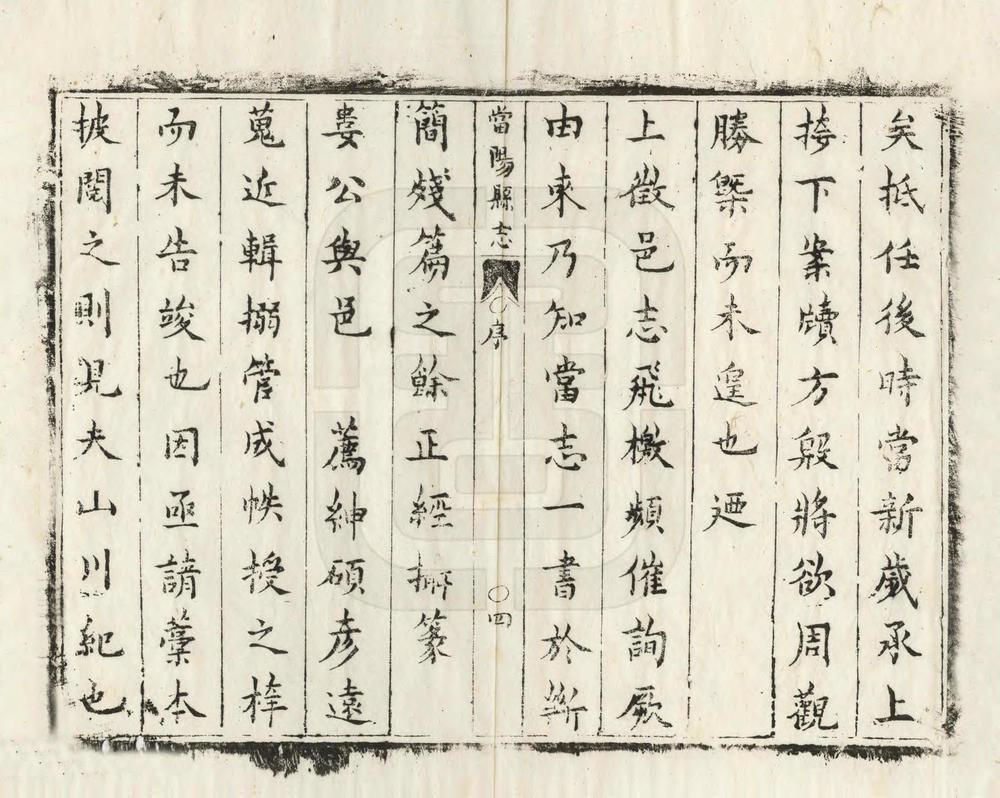 矣抵任後時當新歲承上
接下案牘方殷將欲周觀
勝槩而未遑也迺
上徵邑志飛檄頻催詢厥
由來乃知當志一書於斷
當陽縣志 〇序 〇四
簡殘篇之餘正經搦篆
婁公與邑 薦紳碩彥遠
蒐近輯搦管成帙授之梓
而未告竣也因亟請藳本
披閱之則見夫山川紀也